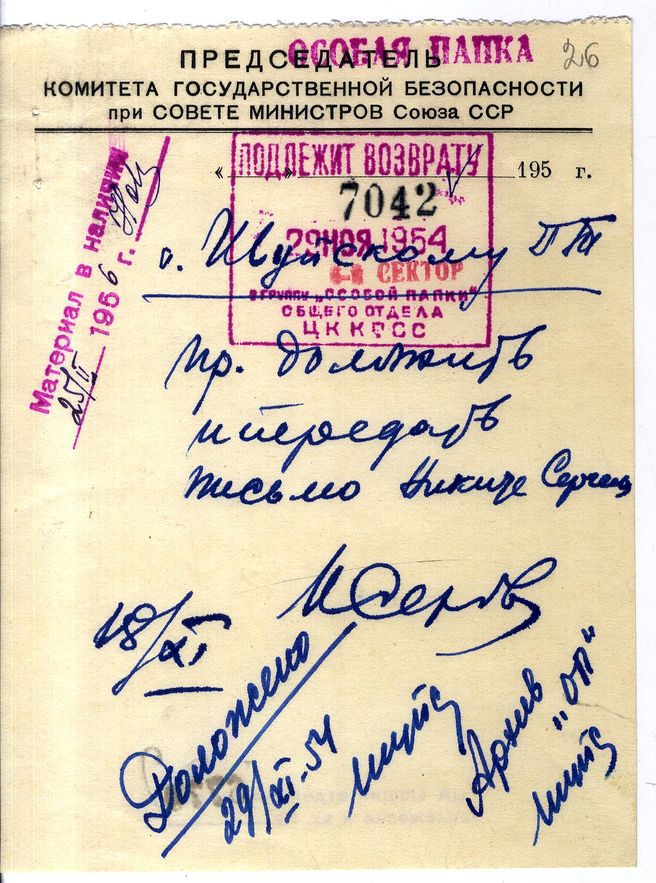 ОСОБАЯ ПАПКА
26
ПРЕДСЕДАТЕЛЬ
КОМИТЕТА ГОСУДАРСТВЕННОЙ БЕЗОПАСНОСТИ
при СОВЕТЕ МИНИСТРОВ Союза ССР
« » 195 г.
ПОДЛЕЖИТ ВОЗВРАТУ
7042
29 НОЯ 1954
СЕКТОР
В ГРУППУ „ОСОБОЙ ПАПКИ"
ОБЩЕГО ОТДЕЛА
ЦК КПСС
Материал в наличии
25/II 1956 г.
т. Шуйскому
пр. доложить
и передать
письмо Никите Сергеев
И Серов
28/XI
Доложено
29/XI-54
Архив „ОП"